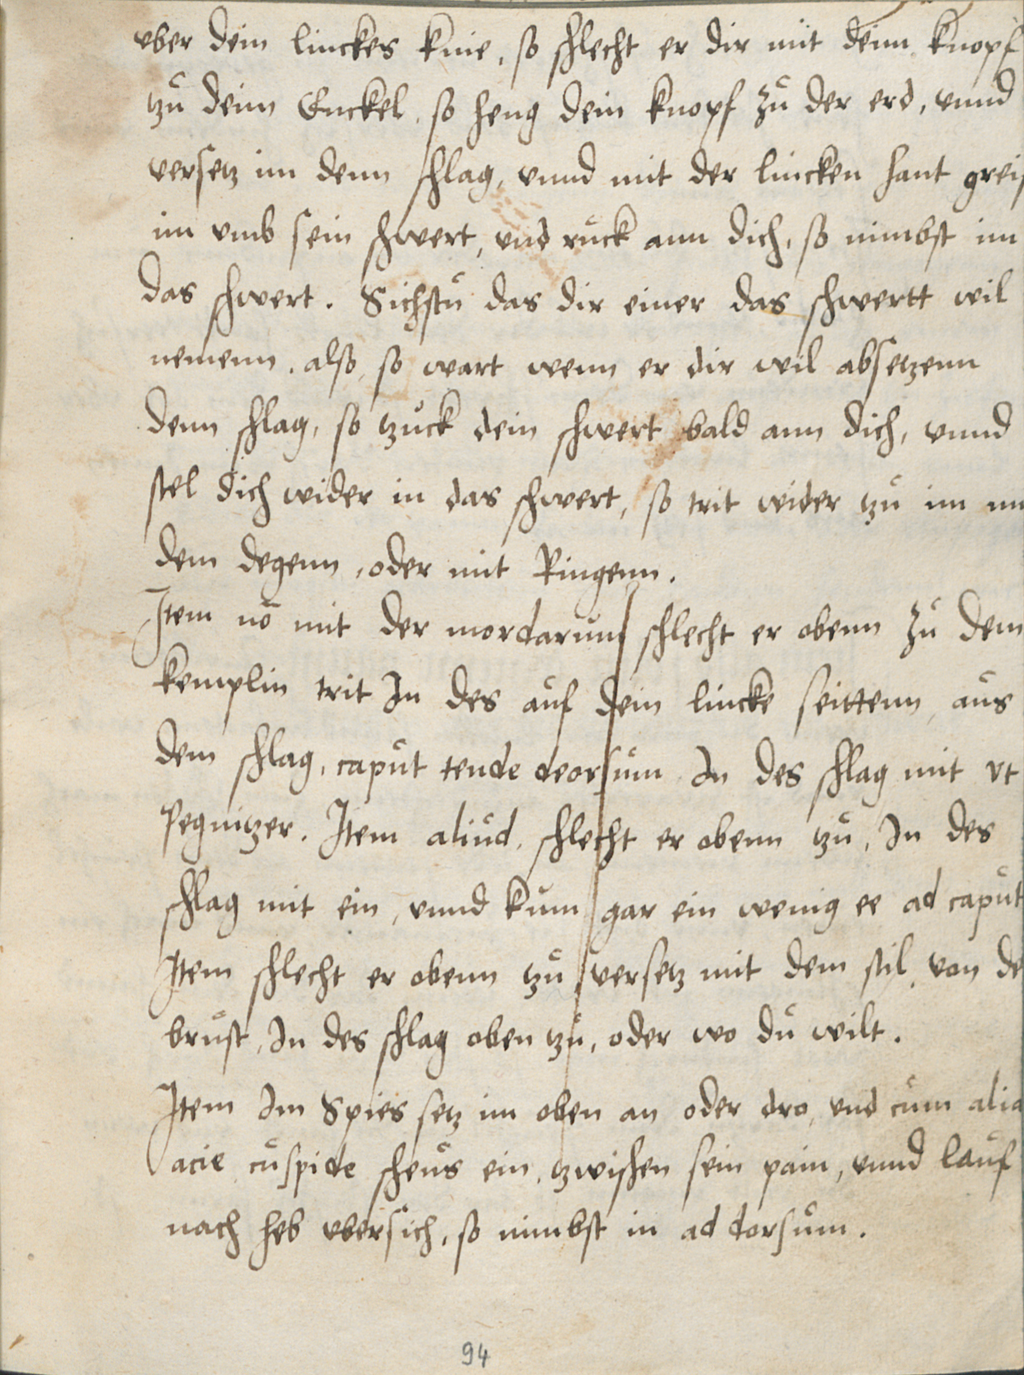 vber dein linckes knie, so schlecht er dir mit denn knopf
tzu deim Enckel, so heng dein knopf zu der erd, vnnd
versetz im denn schlag, vnnd mit der lincken hant greif
im vmb sein schwert, vnd ruck ann dich, so nimbst im
das schwert. Sichstu das dir einer das schwertt wil
nemenn, also, so wart wenn er dir wil absetzenn
denn schlag, so tzuck dein schwert bald ann dich, vnnd
stel dich wider in das schwert, so trit wider tzu im
dem degenn, oder mit Ringenn.
Item nō mit der mordarunt schlecht er obenn zu dem
kemplin trit In des auf dein lincke seittenn, aus
dem schlag, caput tende deorsum In des schlag mit vt
Pegnitzer. Item aliud, schlecht er obenn tzu, In des
schlag mit ein, vnnd kum gar ein wenig ee ad caput
Item schlecht er obenn tzu versetz mit dem stil, von de
brust, In des schlag oben tzu, oder wo du wilt.
Item Im Spies setz im oben an oder dro, vnd cum alia
acie cuspide scheus ein, tzwischen sein pain, vnnd lauf
nach heb vbersich, so nimbst in ad dorsum.
94